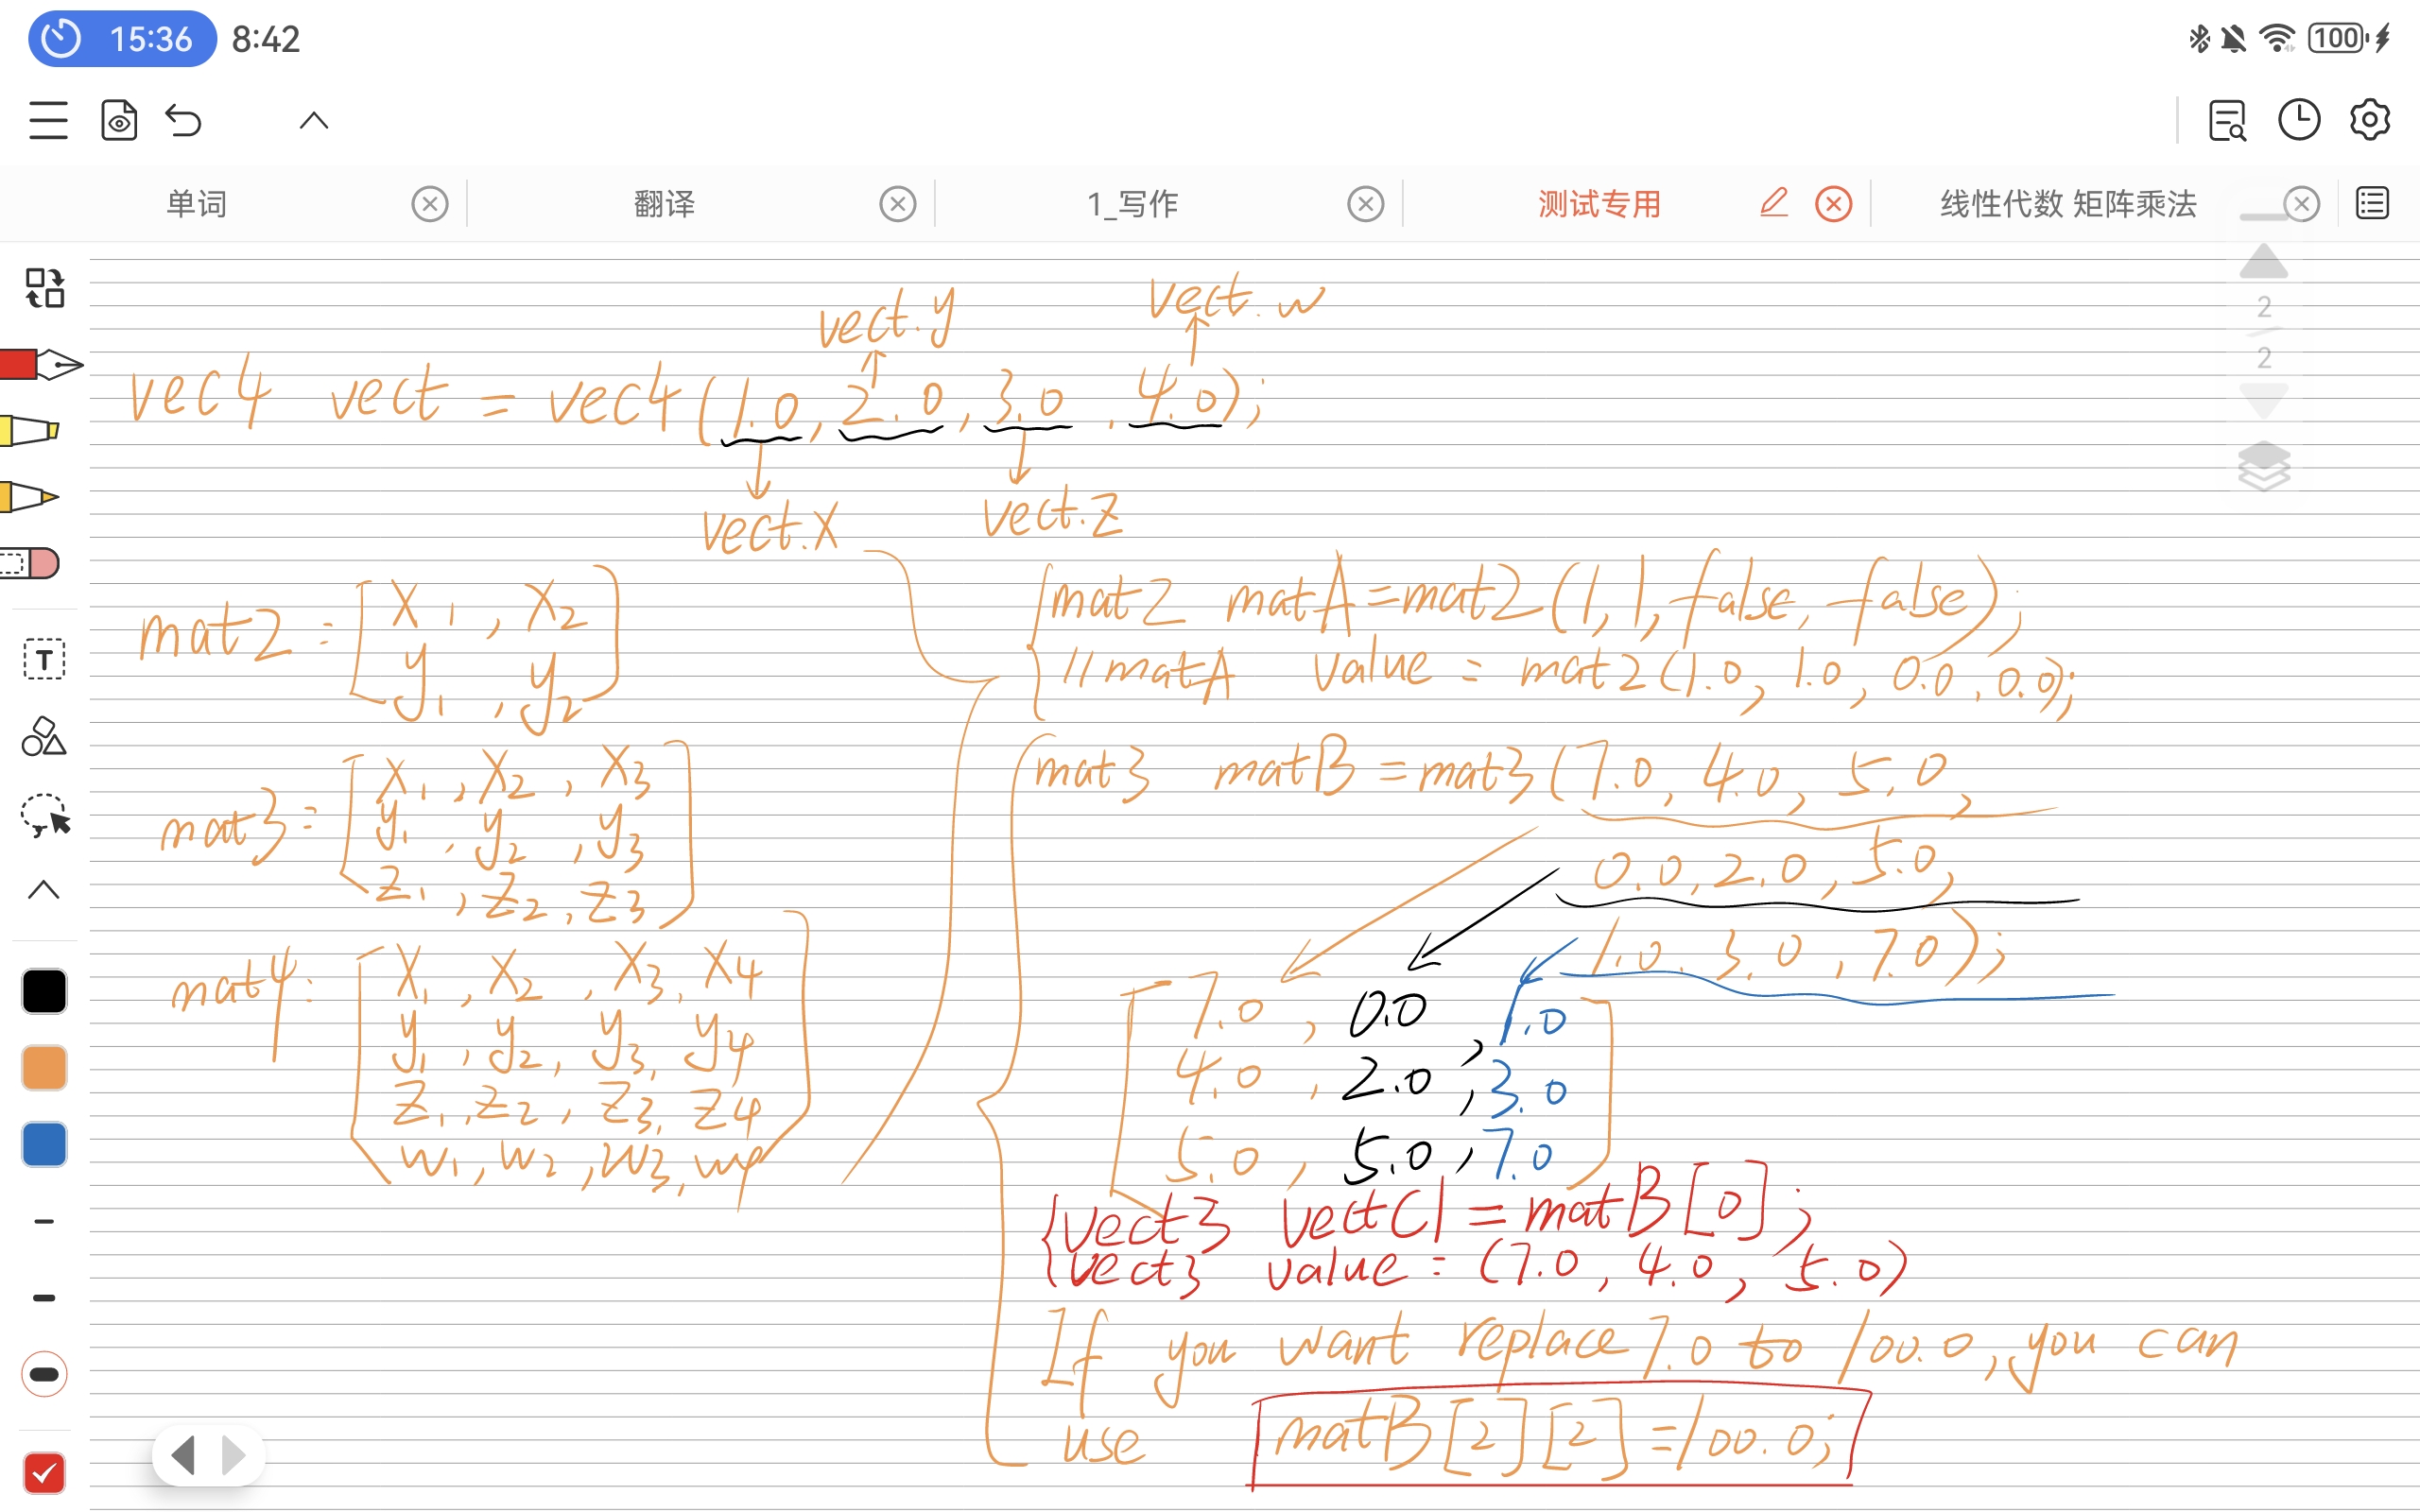 15:36 8:42 100
单词 翻译 1_写作 测试专用 线性代数 矩阵乘法
2
2
vect.y vect.w
vec4 vect = vec4(1.0, 2.0, 3.0 , 4.0);
vect.x vect.z
mat2 : [x1, x2
y1, y2]
mat3: [x1, x2, x3
y1, y2, y3
z1, z2, z3]
mat4: [x1, x2, x3, x4
y1, y2, y3, y4
z1, z2, z3, z4
w1, w2, w3, w4]
mat2 matA=mat2(1, 1, false, false);
//matA value = mat2(1.0, 1.0, 0.0, 0.0);
mat3 matB = mat3(7.0, 4.0, 5.0,
0.0, 2.0, 5.0,
1.0, 3.0, 7.0);
[7.0, 0.0, 1.0
4.0, 2.0, 3.0
5.0, 5.0, 7.0]
{vect3 vectC1 = matB[0];
vect3 value: (7.0, 4.0, 5.0)
If you want replace 7.0 to 100.0, you can
use matB[2][2]=100.0;
T